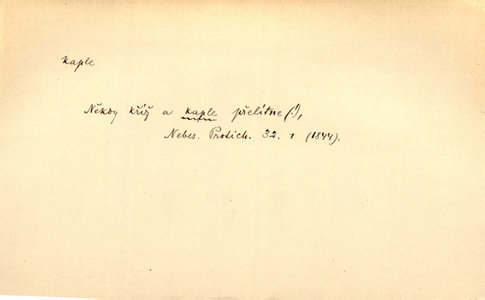 kaple
Někdy kříž a kaple přelítne (!),
Nebes. Protich. 32. 1 (1844).